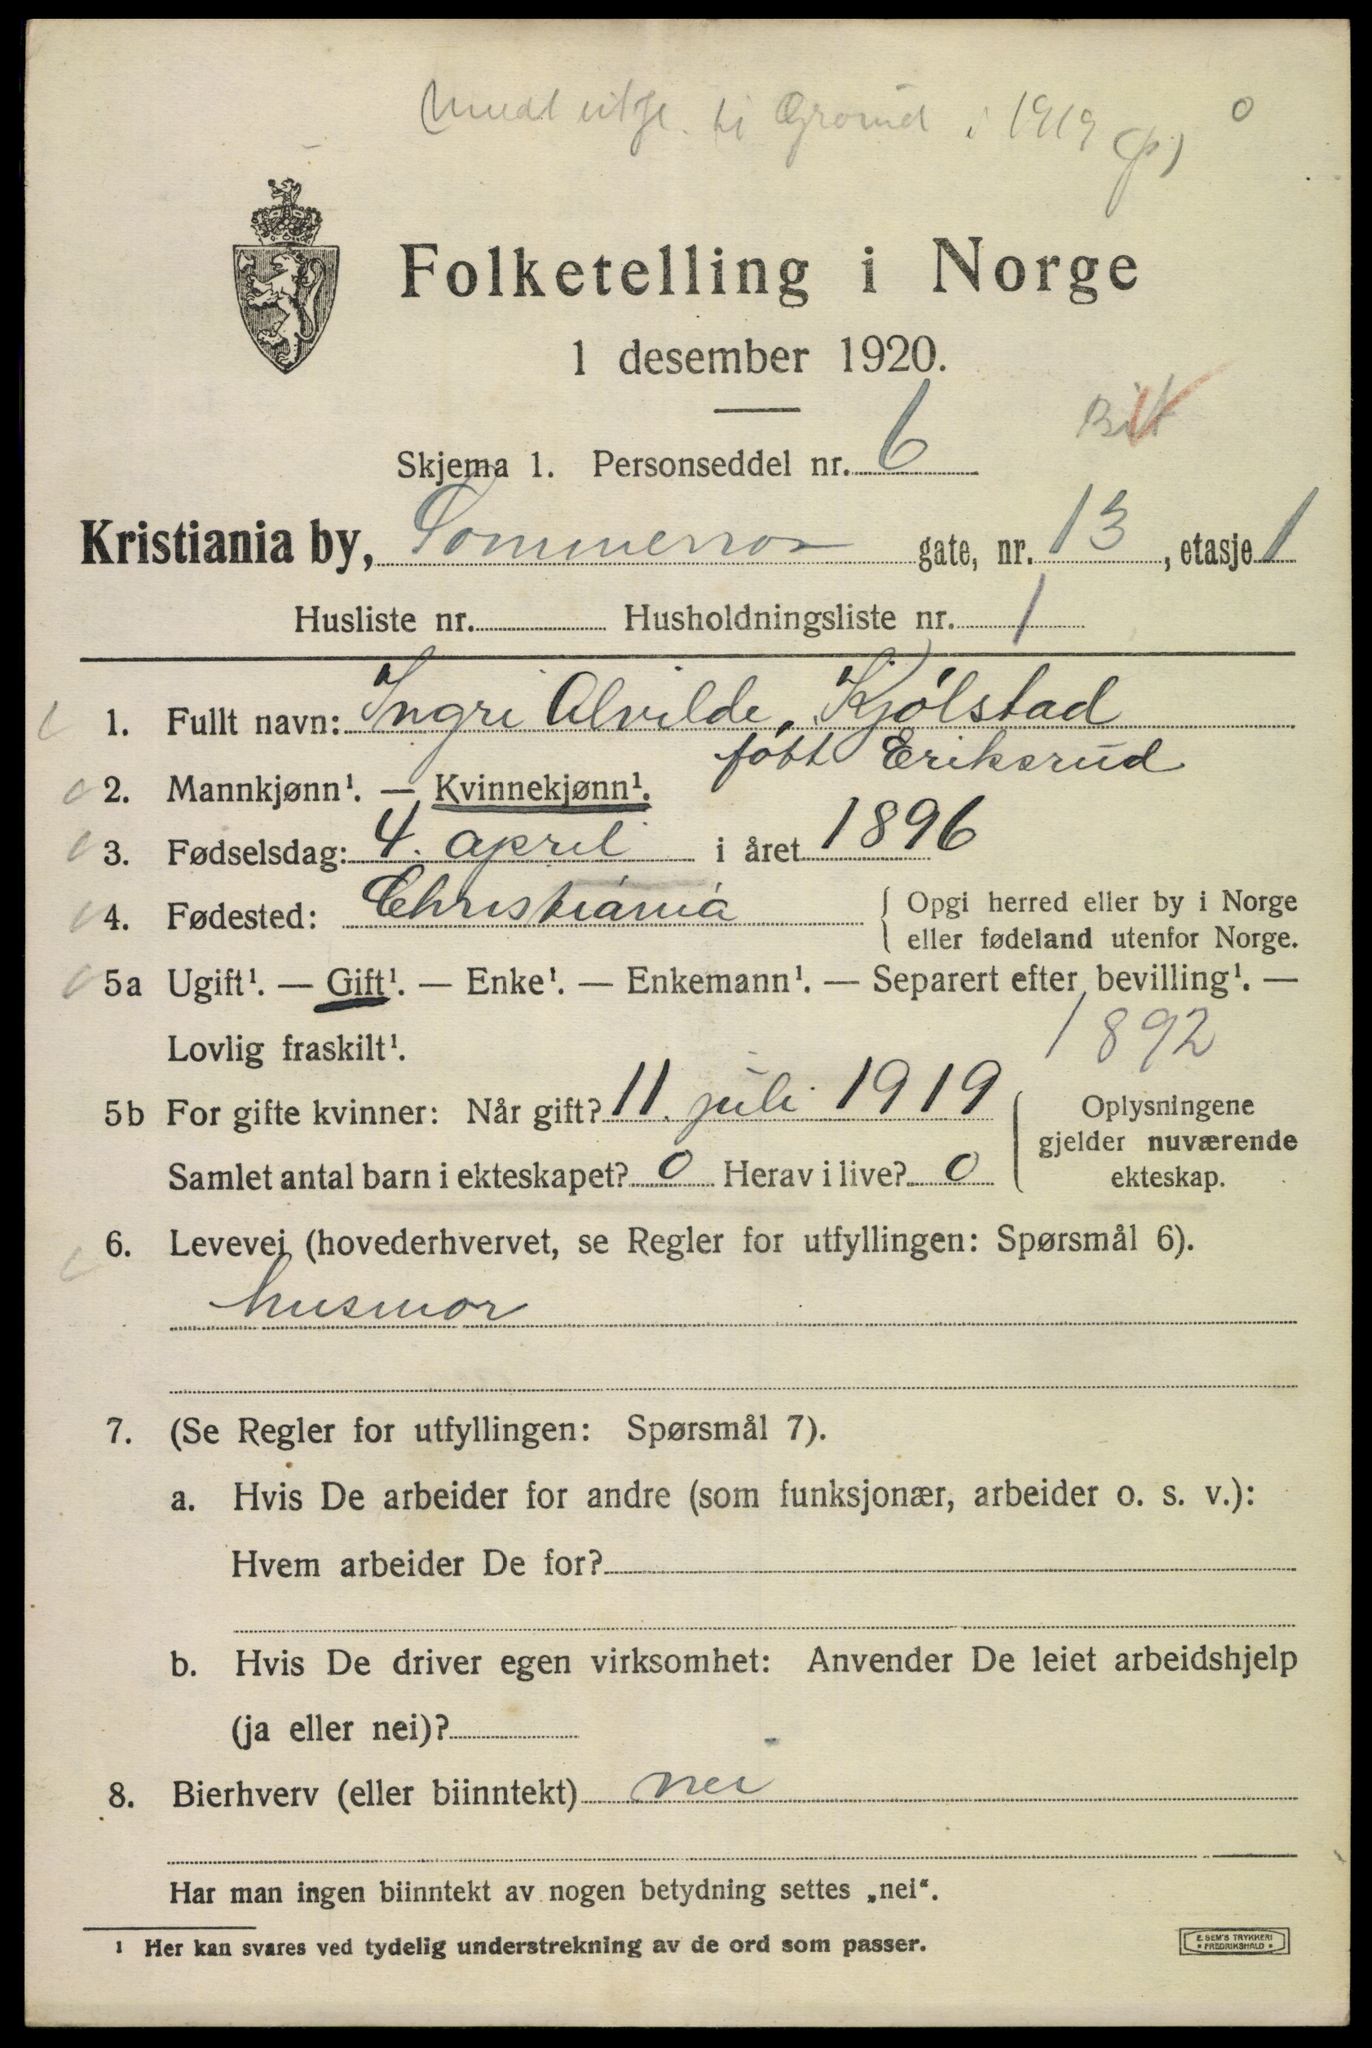 i Grorud i 1919
0
Folketelling i Norge
1 desember 1920.
Skjema 1. Personseddel nr. 6
Kristiania by, Sommerro gate, nr. 13, etasje 1
Husliste nr. Husholdningsliste nr. 1
1. Fullt navn: Ingri Alvilde, Kjólstad
fótt Eriksrud
2. Mannkjønn¹. — Kvinnekjønn¹.
3. Fødselsdag: 4. april i året 1896
4. Fødested: Christiania { Opgi herred eller by i Norge
eller fødeland utenfor Norge.
5a Ugift¹. — Gift¹. — Enke¹. — Enkemann¹. — Separert efter bevilling¹. —
Lovlig fraskilt¹.
1892
5b For gifte kvinner: Når gift? 11. juli 1919
Samlet antal barn i ekteskapet? 0 Herav i live? 0
{ Oplysningene
gjelder nuværende
ekteskap.
6. Levevei (hovederhvervet, se Regler for utfyllingen: Spørsmål 6).
husmor
7. (Se Regler for utfyllingen: Spørsmål 7).
a. Hvis De arbeider for andre (som funksjonær, arbeider o. s. v.):
Hvem arbeider De for?
b. Hvis De driver egen virksomhet: Anvender De leiet arbeidshjelp
(ja eller nei)?
8. Bierhverv (eller biinntekt) nei
Har man ingen biinntekt av nogen betydning settes „nei“.
¹ Her kan svares ved tydelig understrekning av de ord som passer.
E. SEM'S TRYKKERI
• FREDRIKSHALD •